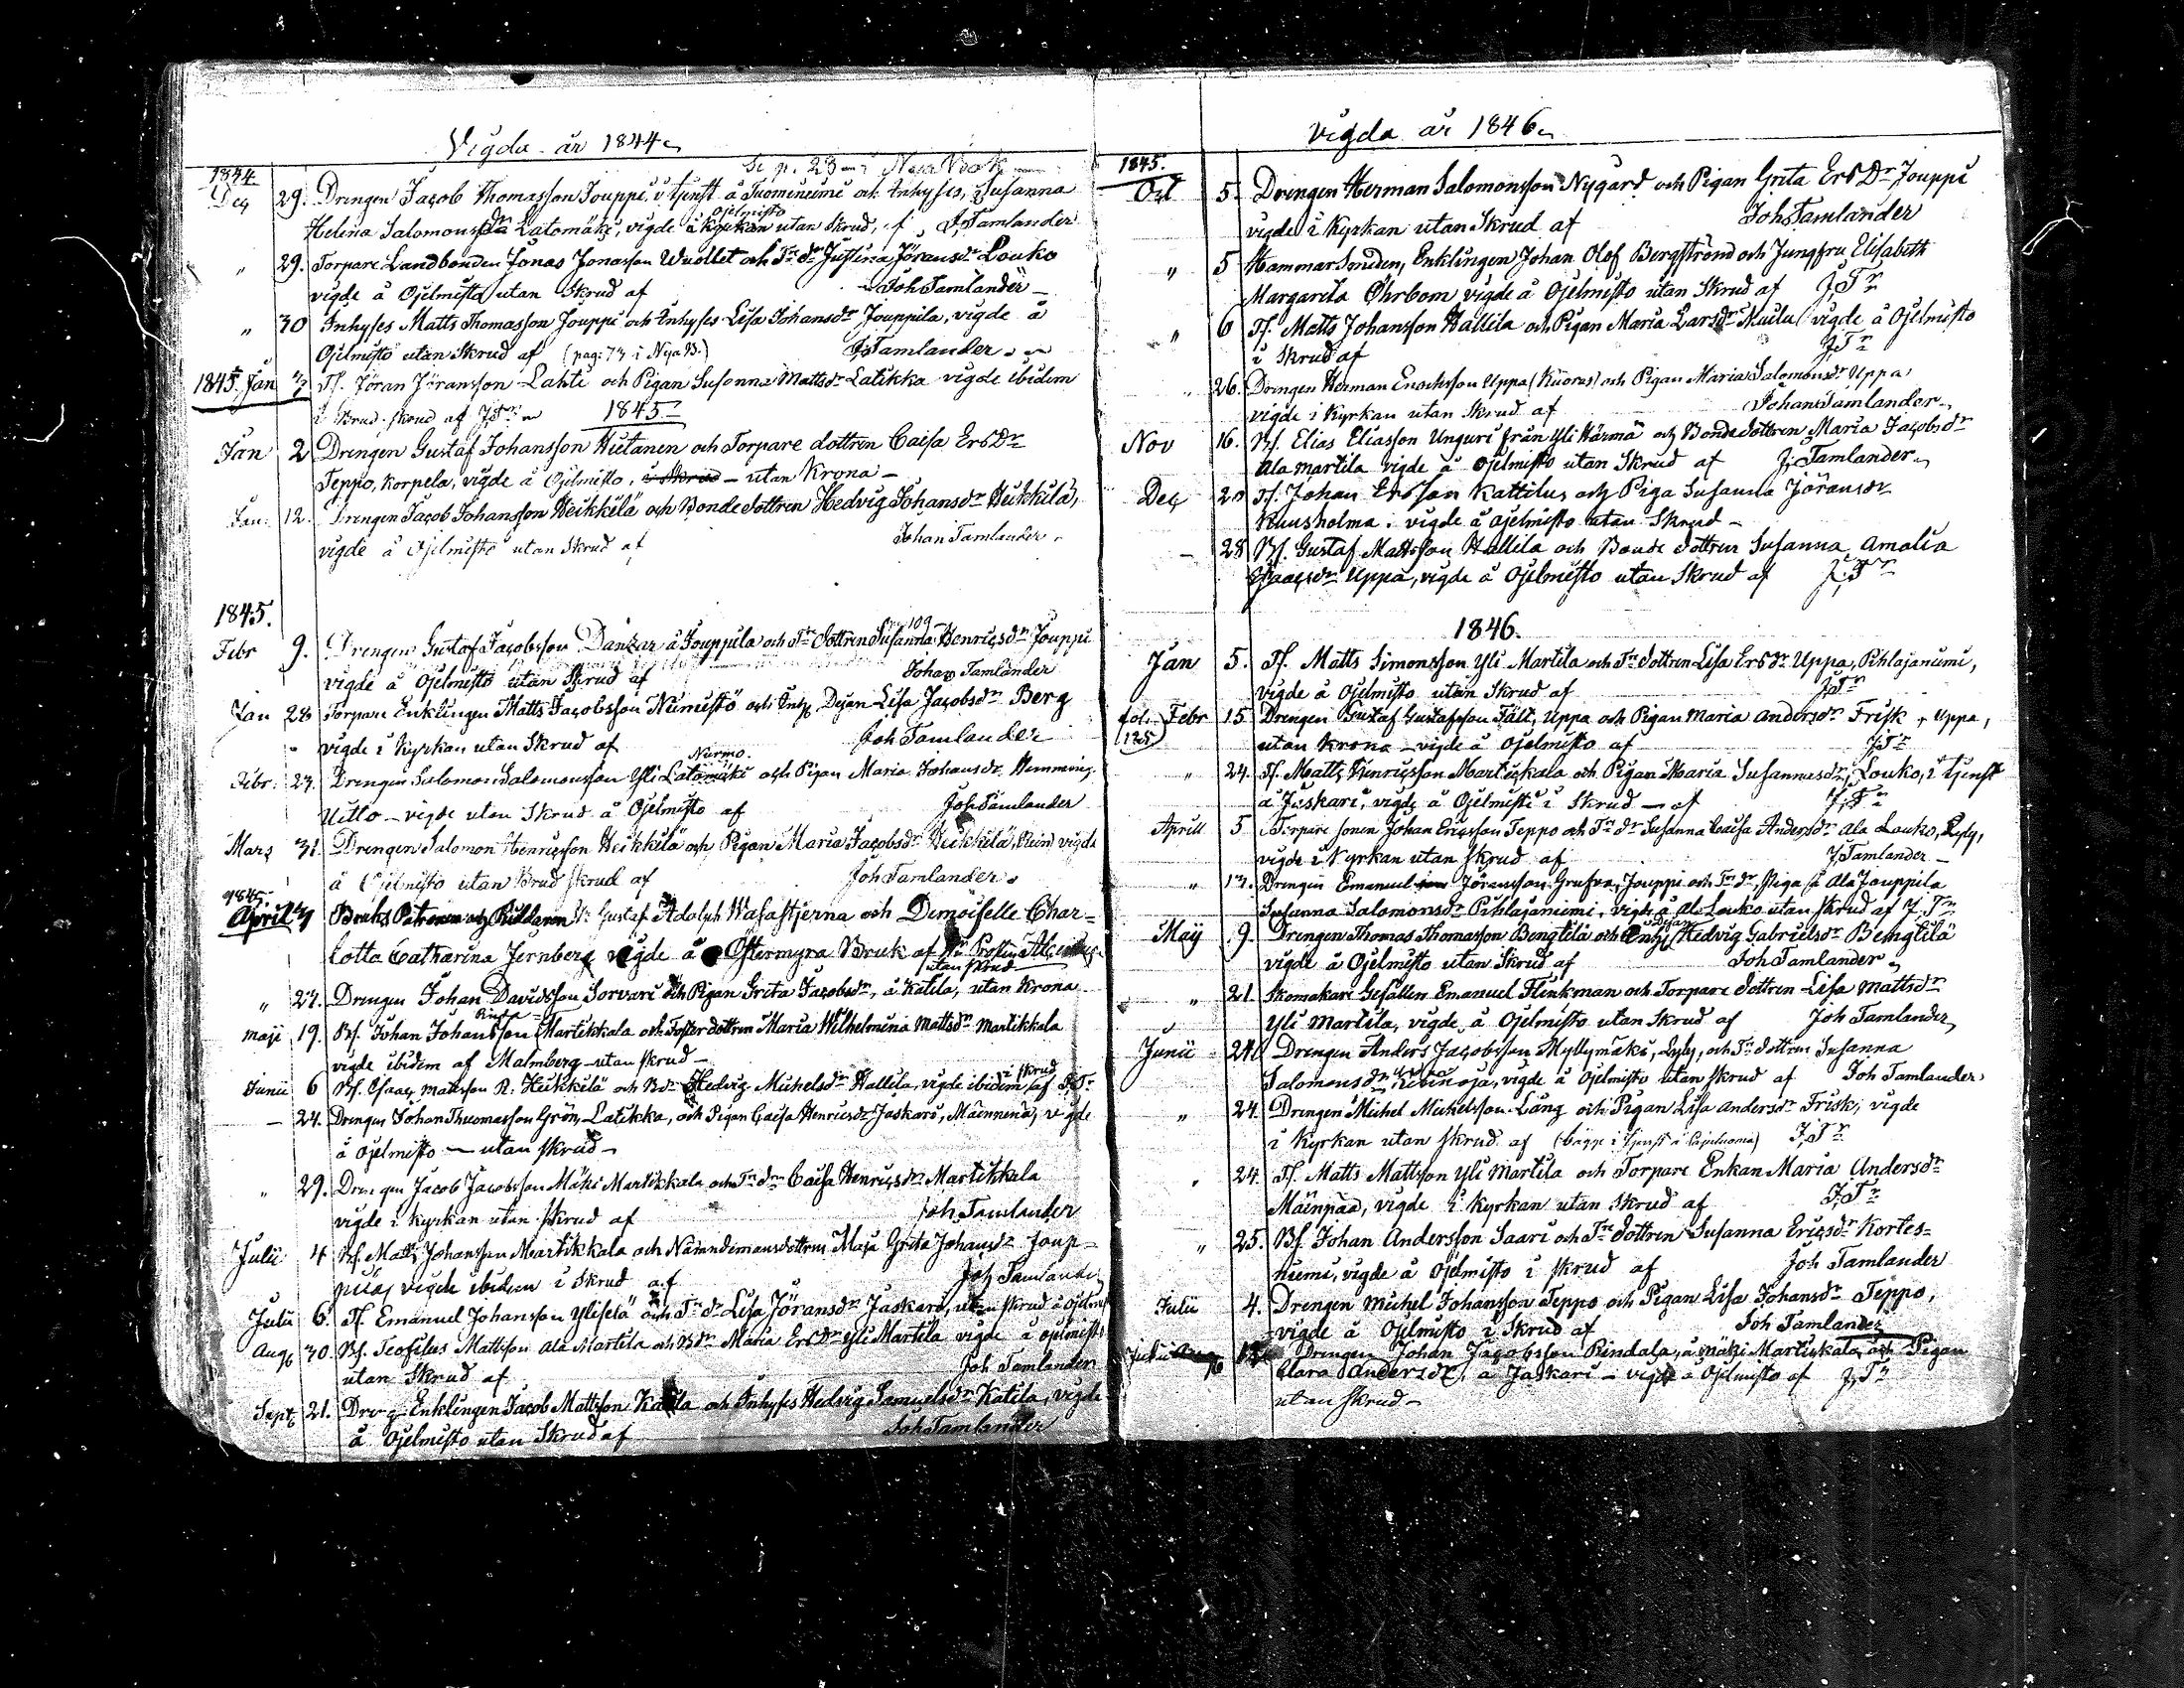 Vigda år 1844
Se p. 23 i Nya Bok
1844.
Dec 29. Drengen Jacob Thomasson Jouppi i tjenst å Tuominiemi och Inhyses, Susanna
Ojelmisto
Helena Salomonsdr Latomäki, vigde i Kyrkan utan Skrud, af J Tamlander
" 29. Torpare Landbonden Jonas Jonasson Wuollet och Tr dr Justina Jöransdr Louko
vigde å Ojelmisto utan Skrud af Joh Tamlander
" 30 Inhyses Matts Thomasson Jouppi och Inhyses Lisa Johansdr Jouppila, vigde å
Ojelmisto utan Skrud af (pag: 73 i Nya B.) J Tamlander
1845. Jan Tf. Jöran Jöransson Lahti och Pigan Susanna Mattsdr Latikka vigde ibidem
i Brud skrud af J.Tr 1845
Jan 2 Drengen Gustaf Johansson Hietanen och Torpare dottren Caisa Ersdr
Teppo, Korpela, vigde å Ojelmisto, i Skrud – utan Krona –
Jan: 12. Drengen Jacob Johansson Heikkilä och Bonde dottren Hedvig Johansdr Heikkilä,
vigde å Ojelmisto utan Skrud af Johan Tamlander
1845.
109
Febr 9. Drengen Gustaf Jacobsson Danzar å Jouppila och Tre Dottren Susanna Henricsdr Jouppi
vigde å Ojelmisto utan Skrud af Johan Tamlander
Jan 28 Torpare Enklingen Matts Jacobsson Niemistö och Lisa Jacobsdr Berg
vigde i Kyrkan utan Skrud af Joh Tamlander
Nurmo
Febr: 23. Drengen Salomon Salomonsson Yli Latomäki och Pigan Maria Johansdr Hemming
Uitto – vigde utan Skrud å Ojelmisto af Joh Tamlander
Mars 31. Drengen Salomon Henricsson Heikkilä och Pigan Maria Jacobsdr Heikkilä, vigde
å Ojelmisto utan Brud skrud af Joh Tamlander
1845.
April Bruks Patronen och Riddaren Gustaf Adolph Wasastjerna och Demoiselle Char=
lotta Catharina Jernberg vigde å Östermyra Bruk af
utan skrud
" 27. Drengen Johan Davidsson Sorvari och Pigan Grita Jacobsdr, å Katila, utan Krona
Rinta
Maji 19. Bf. Johan Johansson Martikkala och Foster dottren Maria Wilhelmina Mattsdr Martikkala
vigde ibidem af Malmberg utan skrud –
i skrud
Junii 6 Bf. Isaac Mattsson R. Heikkilä och Bdr Hedvig Michelsdr Hallila, vigde ibidem af J.Tr
– 24. Drengen Johan Thuomasson Grön, Latikka, och Pigan Caisa Henricsdr Jaskari, vigde
å Ojelmisto – utan skrud –
" 29. Drengen Jacob Jacobsson Mäki Martikkala och Tr dr Caisa Henricsdr Martikkala
vigde i Kyrkan utan skrud af Joh Tamlander
Julii 4 Bf. Matts Johansson Martikkala och Nämndemansdottren Maja Grita Johansdr Joup=
pila, vigde ibidem i skrud af Joh Tamlander
Julii 6. Tf Emanuel Johansson Ylisetä och Tr dr Lisa Jöransdr Jaskari, utan skrud å Ojelm
Aug 30. Bf. Teofilus Mattsson Ala Martila och Bdr Maria Ersdr Yli Martila vigde å Ojelmisto
utan Skrud af Joh Tamlander
Sept 21. Enklingen Jacob Mattsson Katila och Inhyses Hedvig Samuelsdr Katila, vigde
å Ojelmisto utan Skrud af Joh Tamlander
Vigda år 1846
1845.
Oct 5. Drengen Herman Salomonsson Nygård och Pigan Grita Ers Dr Jouppi
vigde i Kyrkan utan Skrud af Joh Tamlander
" 5 Hammar Smeden, Enklingen Johan Olof Bergström och Jungfru Elisabeth
Margareta Öhrbom vigde å Ojelmisto utan Skrud af J.Tr
" 6 Tf. Matts Johansson Hallila och Pigan Maria Larsdr vigde å Ojelmisto
i Skrud af J.Tr
" 26. Drengen Herman Enochsson Uppa och Pigan Maria Salomonsdr Uppa
vigde i Kyrkan utan Skrud af Johan Tamlander
Nov 16. Bf. Elias Eliasson Unguri från Yli Härmä och Bonde dottren Maria Jacobsdr
Ala Martila vigde å Ojelmisto utan Skrud af J. Tamlander
Dec 20 Tf. Johan Ersson Kattilus och Piga Susanna Jöransdr
Kuusholma, vigde å Ojelmisto utan Skrud –
– 28 Bf. Gustaf Mattsson Hallila och Bonde dottren Susanna Amalia
Isaacsdr Uppa, vigde å Ojelmisto utan Skrud af J.Tr
1846.
Jan 5. Tf. Matts Simonsson Yli Martila och Tre dottren Lisa Ersdr Uppa, Pihlajaniemi,
vigde å Ojelmisto utan Skrud af J.Tr
fol. 125 Febr 15 Drengen Gustaf Gustafsson Fält, Uppa och Pigan Maria Andersdr Frisk, Uppa,
utan Krona – vigde å Ojelmisto af J.Tr
" 24. Tf. Matts Henricsson Martickala och Pigan Maria Susannasdr, Louko, i tjenst
å Jaskari, vigde å Ojelmisto i Skrud – af J.Tr
Aprill 5 Torpare sonen Johan Ericsson Teppo och Tre dr Susanna Caisa Andersdr Ala Louko, Lyly,
vigde i Kyrkan utan skrud af J Tamlander –
" 13. Drengen Emanuel Jöransson Grufva, Jouppi och Tr dr, Piga på Ala Jouppila
Susanna Salomonsdr Pihlajaniemi, vigde å Al. Louko utan skrud af J.Tr
Maij 9. Drengen Thomas Thomasson Bengtilä och Hedvig Gabrielsdr Bengtilä
vigde å Ojelmisto utan Skrud af Joh Tamlander
" 21. Skomakare Gesällen Emanuel Flinkman och Torpare dottren Lisa Mattsdr
Yli Martila, vigde å Ojelmisto utan Skrud af Joh Tamlander
Junii 24 Drengen Anders Jacobsson Myllymäki, Lyly, och Tre dottren Susanna
Salomonsdr, vigde å Ojelmisto utan skrud af Joh Tamlander
" 24. Drengen Michel Michelsson Lång och Pigan Lisa Andersdr Frisk, vigde
i Kyrkan utan skrud af (bägge i tjenst å) J.Tr
" 24. Tf. Matts Mattsson Yli Martila och Torpare Enkan Maria Andersdr
Mäinpää, vigde i Kyrkan utan Skrud af J.Tr
" 25. Bf. Johan Andersson Saari och Tre dottren Susanna Ericsdr Kortes=
niemi, vigde å Ojelmisto i skrud af Joh Tamlander
Julii 4. Drengen Michel Johansson Teppo och Pigan Lisa Johansdr Teppo,
vigde å Ojelmisto i Skrud af Joh Tamlander
Julii Drengen Johan Jacobsson Rindala, å Mäki Martickala, och Pigan
Clara Andersdr, å Jaskari – vigde å Ojelmisto af J.Tr
utan skrud –